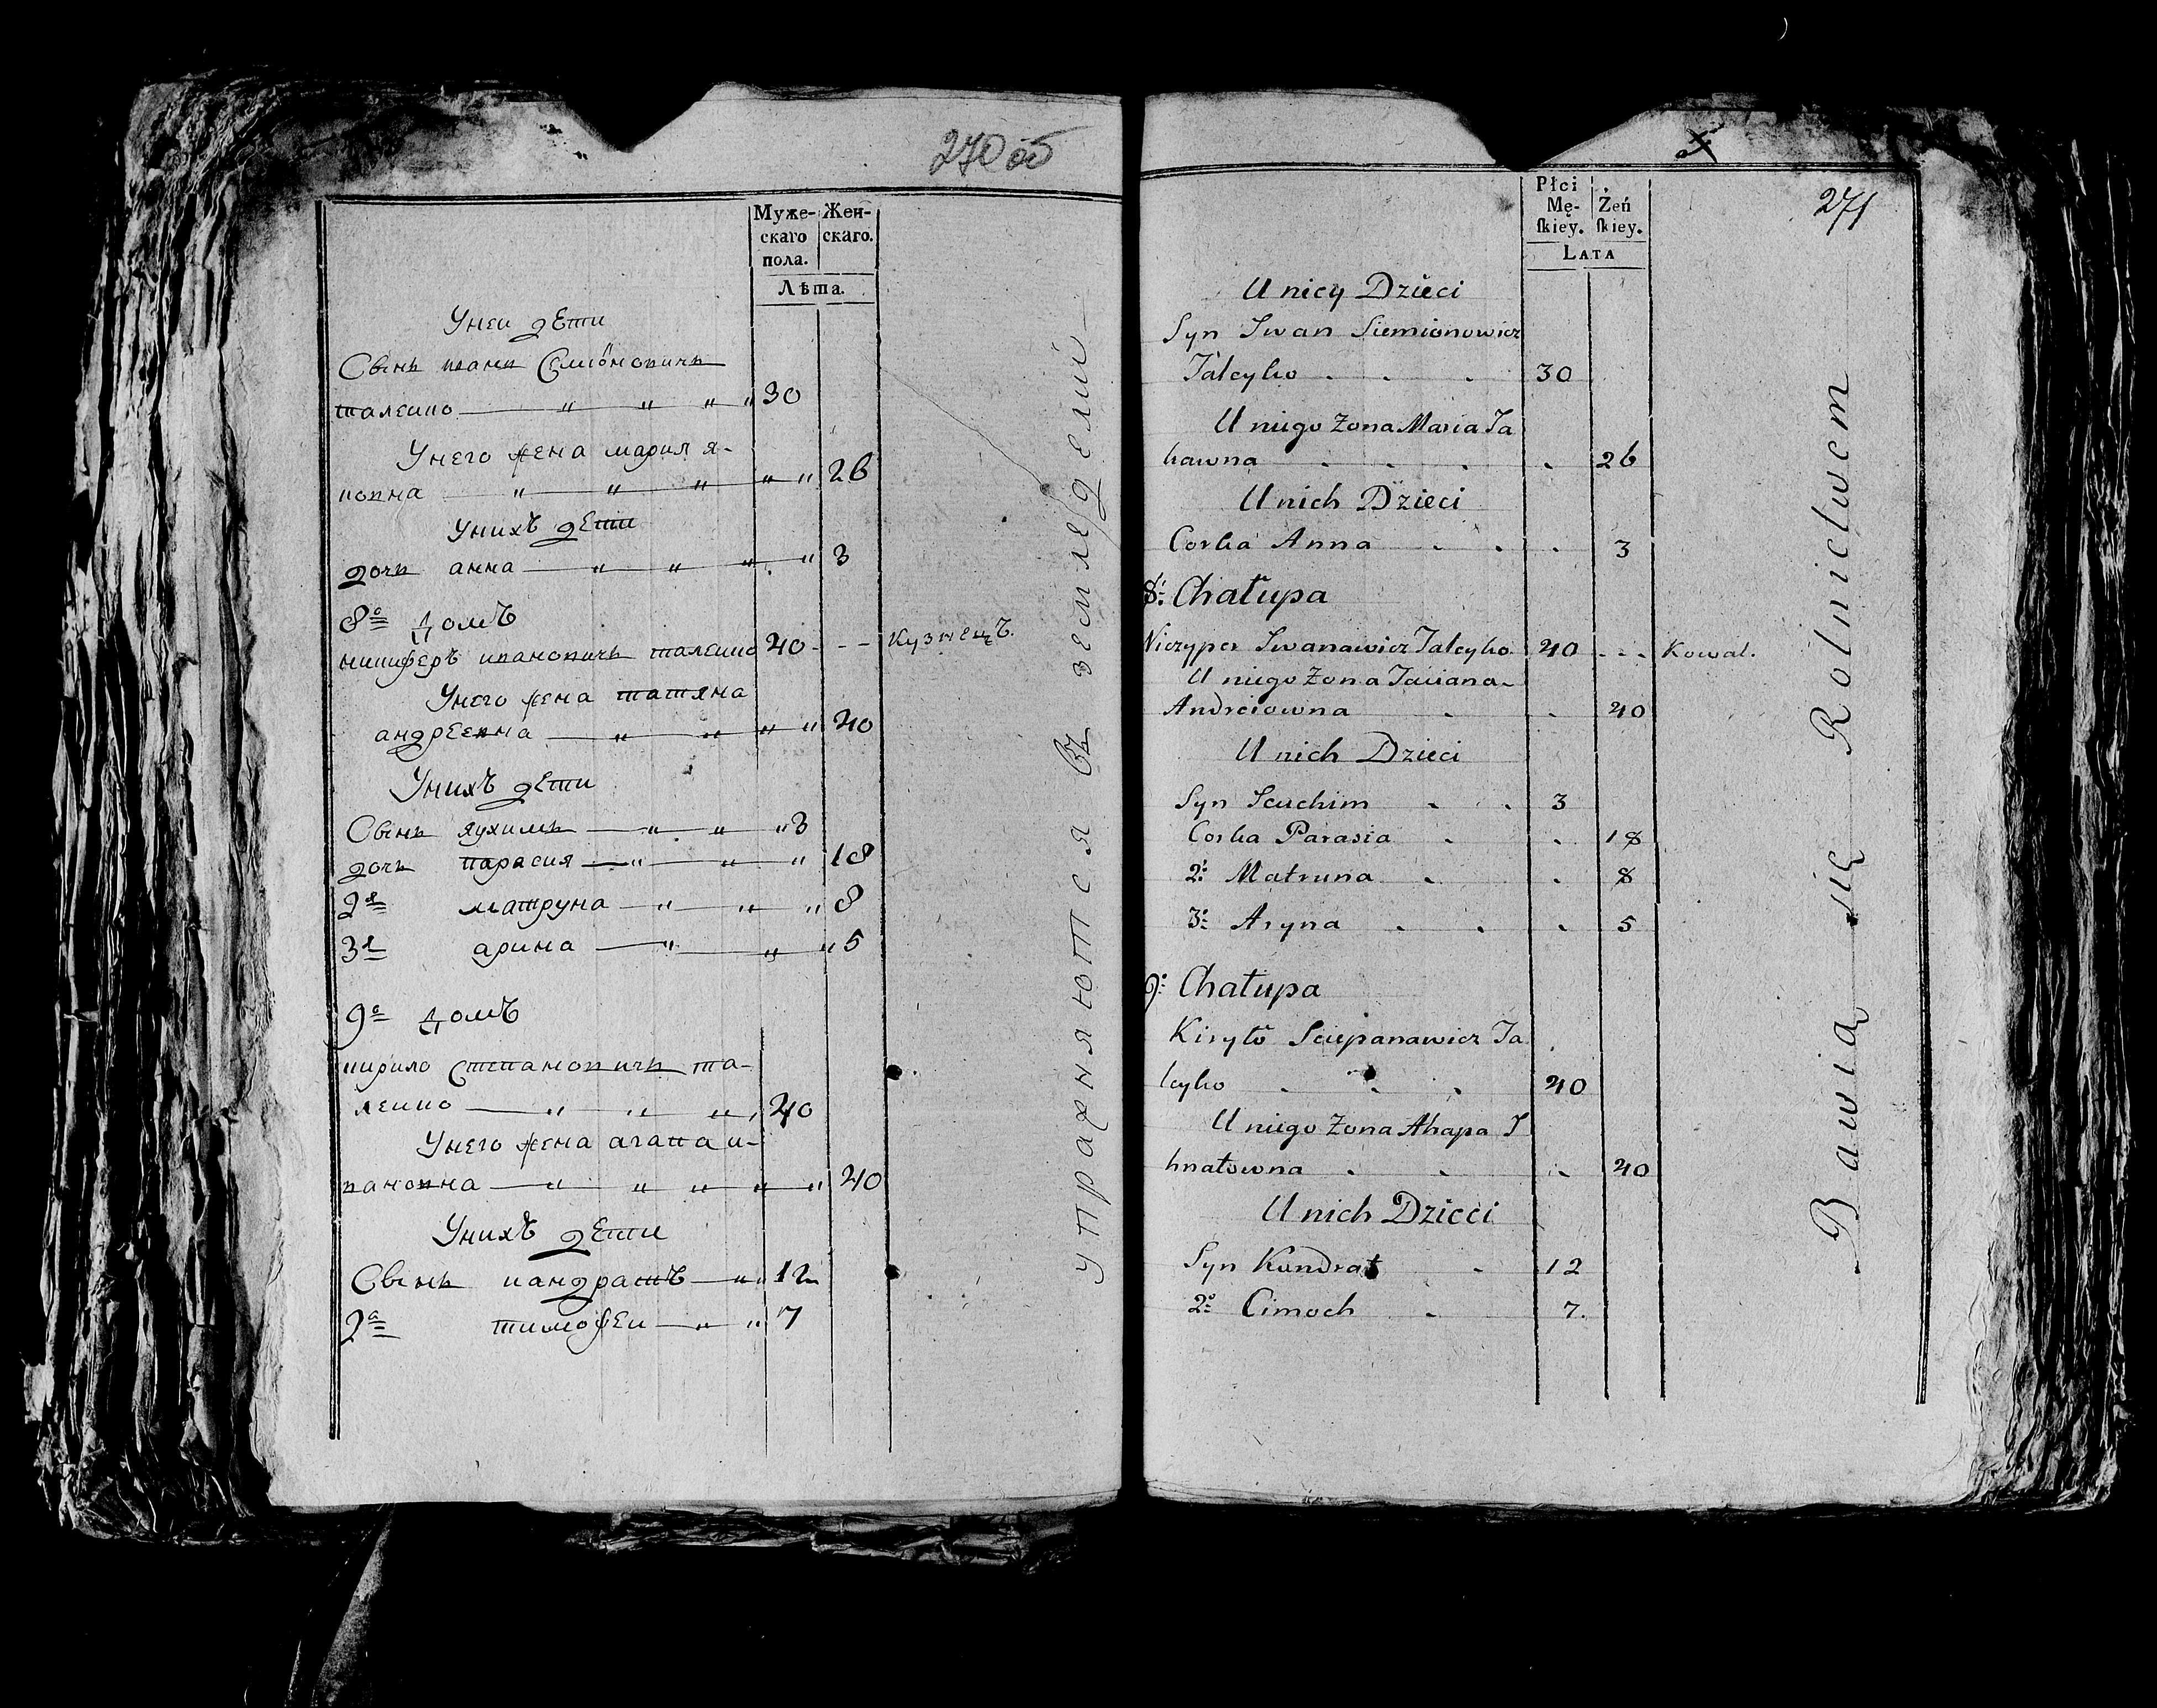 270 об
Муже-
скаго
пола.
Жен-
скаго.
Лѣта.
Унеи дети
Сынъ иванъ Семіоновичъ
талеико 30
Унего жена мария я-
ковна 26
Унихъ дети
дочь анна 3
8й домъ
никиферъ ивановичъ талеико 40 кузнецъ.
Унего жена татяна
андреевна 40
Унихъ дети
Сынъ яухимъ 3
дочь парасия 18
2я матруна 8
3я арина 5
9й домъ
кирило степановичъ та-
леико 40
Унего жена агапа и-
вановна 40
Унихъ дети
Сынъ кандратъ 12
2й тимофеи 7
упражняются въ земледелии
271
Płci
Mę-
skiey.
Żeń
skiey.
LATA
U niey Dzieci
Syn Iwan Siemionowicz
Taleyko 30
U niego Żona Maria Ja
kawna 26
U nich Dzieci
Corka Anna 3
8: Chałupa
Niczyper Iwanawicz Taleyko 40 Kowal.
U niego Żona Taciana
Andreiowna 40
U nich Dzieci
Syn Jauchim 3
Corka Parasia 18
2: Matruna 8
3: Aryna 5
9: Chałupa
Kiryło Sciepanawicz Ta
leyko 40
U niego Żona Ahapa I
hnatowna 40
U nich Dzieci
Syn Kandrat 12
2: Cimoch 7.
Bawią się Rolnictwem